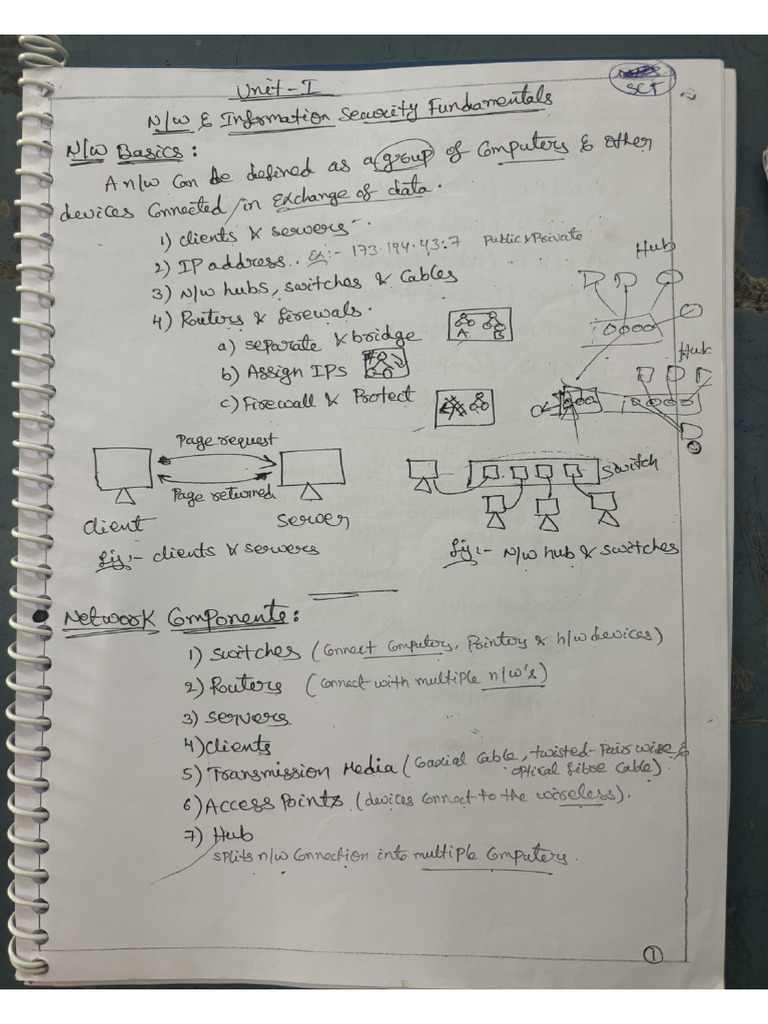 SCT
Unit-I
N/w & Information Security Fundamentals
N/w Basics:
A n/w can be defined as a group of computers & other
devices connected in exchange of data.
1) clients & servers
2) IP address.. Ex:- 173.194.43:7 Public & Private
3) N/w hubs, switches & cables
4) Routers & firewals.
a) separate & bridge
A B
b) Assign IPs
c) Firewall & Protect
Hub
Hub
Page request
Page returned
client
server
fig:- clients & servers
switch
fig:- N/w hub & switches
Network Components:
1) switches (connect computers, Printers & h/w devices)
2) Routers (connect with multiple n/w's)
3) servers
4) clients
5) Transmission Media (Coaxial cable, twisted-Pair wire &
optical fibre cable).
6) Access Points (devices connect to the wireless).
7) Hub
splits n/w connection into multiple computers.
1